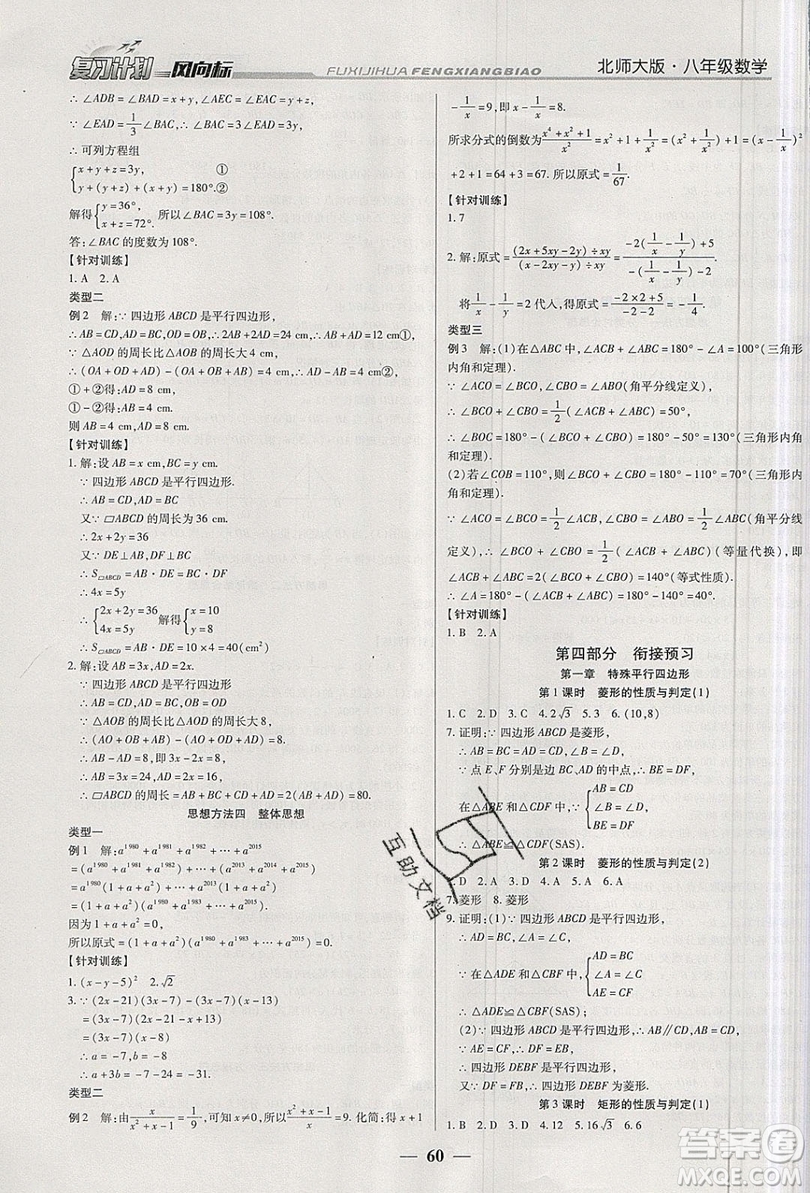 复习计划 风向标
FUXIJIHUA FENGXIANGBIAO
北师大版·八年级数学
∴∠ADB=∠BAD=x+y,
∵∠EAD=1/3∠BAC,
∴可列方程组
{x+y+z=3y, ①
y+(y+z)+(x+y)=180°. ②
解得{y=36°, x+z=72°. 所以∠BAC=3y=108°.
答:∠BAC的度数为108°.
【针对训练】
1. A 2. A
类型二
例2 解:∵四边形ABCD是平行四边形,
∴AB=CD,AD=BC,∴2AB+2AD=24 cm,∴AB+AD=12 cm,①
∵△AOD的周长比△AOB的周长大4 cm,
∴(OA+OD+AD)-(OA+OB+AB)=AD-AB=4 cm,②
①+②得:AD=8 cm,
①-②得:AB=4 cm.
则AB=4 cm,AD=8 cm.
【针对训练】
1. 解:设AB=x cm,BC=y cm.
∵四边形ABCD是平行四边形.
∴AB=CD,AD=BC
又∵▱ABCD的周长为36 cm.
∴2x+2y=36
又∵DE⊥AB,DF⊥BC.
∴S▱ABCD=AB·DE=BC·DF
∴4x=5y
∴{2x+2y=36 4x=5y 解得{x=10 y=8
∴S▱ABCD=AB·DE=10×4=40(cm²)
2. 解:设AB=3x,BC=2x.
∵四边形ABCD是平行四边形
∴AO=CO,BO=DO
∵△AOB的周长比△BOC的周长大8,
∴(AO+OB+AB)-(BO+OC+BC)=8,
∴AB-BC=8,即3x-2x=8.
∴x=8,∴AB=24,BC=16,
∴▱ABCD的周长为:(24+16)×2=80.
思想方法四 整体思想
类型一
例1 解:∵a¹⁹⁸⁰+a¹⁹⁸¹+a¹⁹⁸²+⋯+a²⁰¹⁵+a²⁰¹⁶+a²⁰¹⁷
=(a¹⁹⁸⁰+a¹⁹⁸¹+a¹⁹⁸²)+⋯+(a²⁰¹⁵+a²⁰¹⁶+a²⁰¹⁷)
=a¹⁹⁸⁰(1+a+a²)+⋯+a²⁰¹⁵(1+a+a²)
=(1+a+a²)(a¹⁹⁸⁰+a¹⁹⁸³+⋯+a²⁰¹⁵).
因为1+a+a²=0,
所以原式=(1+a+a²)(a¹⁹⁸⁰+a¹⁹⁸³+⋯+a²⁰¹⁵)=0.
【针对训练】
1. (x-y-5)² 2.√2
3. ∵(2x-21)(3x-7)-(3x-7)(x-13)
=(3x-7)(2x-21-x+13)
=(3x-7)(x-8)
=(3x+a)(x+b),
∴a=-7,b=-8,
∴a+3b=-7-24=-31.
类型二
例2 解:由x/(x²+x-1)=1/9,可知x≠0,所以(x²+x-1)/x=9. 化简:得x+1
-1/x=9,即x-1/x=8.
所求分式的倒数为(x⁴+x²+1)/x²=x²+1+1/x²=(x²+1/x²)+1=(x-1/x)²
+2+1=64+3=67. 所以原式=1/67.
【针对训练】
1. 7
2. 解:原式=(2x+5xy-2y)÷xy/(x-2xy-y)÷xy=(-2(1/x-1/y)+5)/(-(1/x-1/y)-2)
将1/x-1/y=2代人,得原式=(-2×2+5)/(-2-2)=-1/4.
类型三
例3 解:(1)在△ABC中,∠ACB+∠ABC=180°-∠A=100°(三角形
内角和定理).
∵∠ACO=∠BCO,∠CBO=∠ABO(角平分线定义),
∴∠BCO+∠CBO=1/2(∠ACB+∠ABC)=50°,
∴∠BOC=180°-(∠BCO+∠CBO)=180°-50°=130°(三角形内
角和定理)
(2)若∠COB=110°,则∠BCO+∠CBO=180°-110°=70°(三角形内
角和定理).
∵∠ACO=∠BCO=1/2∠ACB,∠CBO=∠ABO=1/2∠ABC(角平分线
定义),∴∠BCO+∠CBO=1/2(∠ACB+∠ABC)(等量代换),即
∠ACB+∠ABC=2(∠BCO+∠CBO)=140°(等式性质).
∴∠A=180°-(∠ACB+∠ABC)=180°-140°=40°.
【针对训练】
1. B 2. A
第四部分 衔接预习
第一章 特殊平行四边形
第1课时 菱形的性质与判定(1)
1. C 2. D 3. C 4. 2√3 5. 3 6. (10,8)
7. 证明:∵四边形ABCD是菱形,
∴AB=BC=CD=AD,∠B=∠D,
∵点E、F分别是边BC、AD的中点,∴BE=DF,
在△ABE和△CDF中,∵{AB=CD ∠B=∠D BE=DF,
∴△ABE≌△CDF(SAS).
第2课时 菱形的性质与判定(2)
1. D 2. D 3. A 4. B 5. D 6. A
7. 菱形 8. 菱形
9. 证明:(1)∵四边形ABCD是平行四边形,
∴AD=BC,∠A=∠C,
∵在△ADE和△CBF中{AD=BC ∠A=∠C AE=CF
∴△ADE≌△CBF(SAS);
(2)∵四边形ABCD是平行四边形,∴AB∥CD,AB=CD,
∵AE=CF,∴DF=EB,
∴四边形DEBF是平行四边形,
又∵DF=FB,∴四边形DEBF为菱形.
第3课时 矩形的性质与判定(1)
1. B 2. D 3. C 4. B 5. 16 6. 6
60
互助文档
答案圈
MXQE.COM